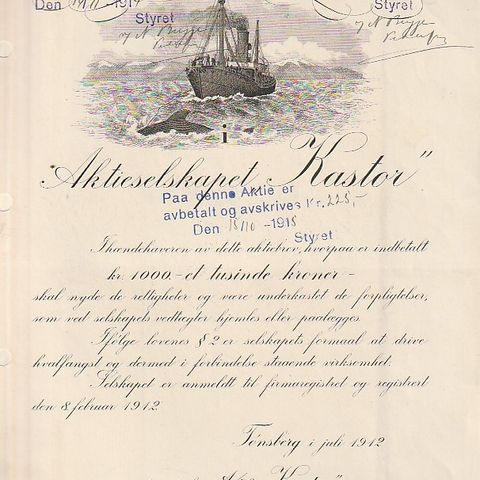 Den 19/11 -191
Styret
Styret
i
Aktieselskapet „Kastor”
Paa denne Aktie er
avbetalt og avskrives Kr. 225,-
Den 15/10 -1915
Styret
Ihændehaveren av dette aktiebrev, hvorpaa er indbetalt
kr. 1000.- et tusinde kroner -
skal nyde de rettigheter og være underkastet de forpligtelser,
som ved selskapets vedtægter hjemles eller paalægges.
Ifølge lovenes § 2 er selskapets formaal at drive
hvalfangst og dermed i forbindelse staaende virksomhet.
Selskapet er anmeldt til firmaregistret og registrert
den 8 februar 1912.
Tønsberg i juli 1912